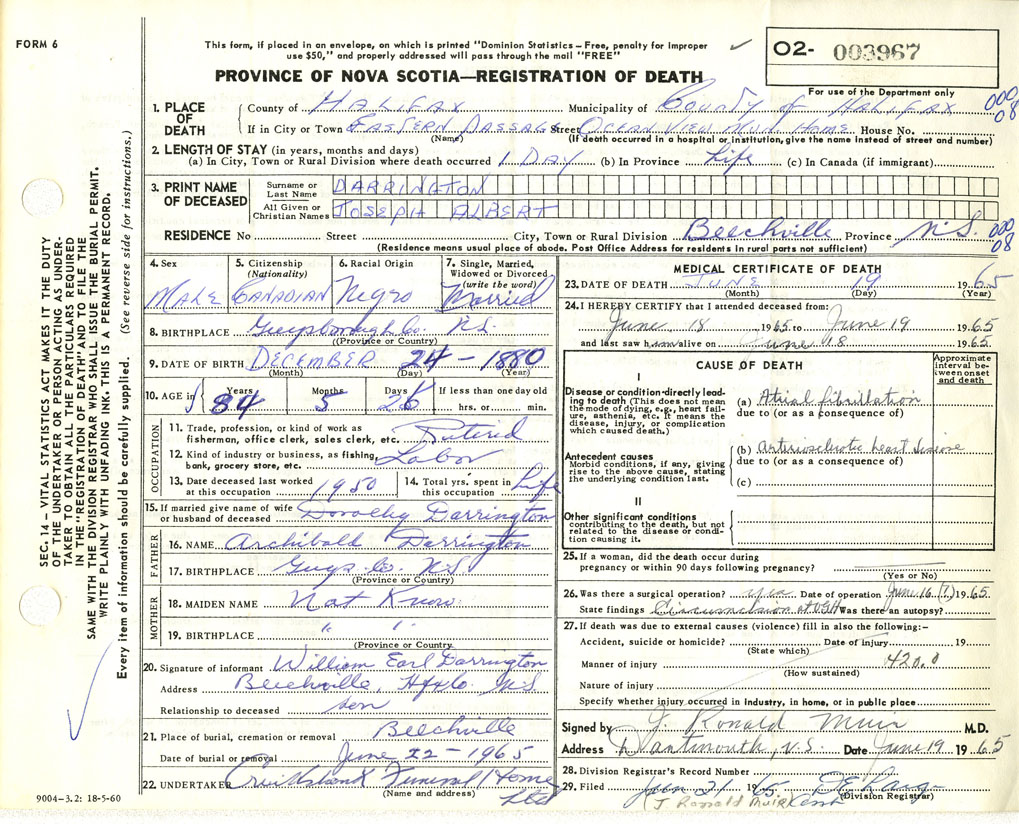 FORM 6
This form, if placed in an envelope, on which is printed "Dominion Statistics – Free, penalty for improper
use $50," and properly addressed will pass through the mail "FREE"
O2- 003967
For use of the Department only
PROVINCE OF NOVA SCOTIA—REGISTRATION OF DEATH
1. PLACE OF DEATH
County of HALIFAX Municipality of COUNTY OF HALIFAX 000 08
If in City or Town EASTERN PASSAGE Street OCEAN VIEW MUN. HOME House No.
(Name) (If death occurred in a hospital or institution, give the name instead of street and number)
2. LENGTH OF STAY (in years, months and days)
(a) In City, Town or Rural Division where death occurred 1 DAY (b) In Province Life (c) In Canada (if immigrant)
3. PRINT NAME OF DECEASED
Surname or Last Name DARRINGTON
All Given or Christian Names JOSEPH ALBERT
RESIDENCE No Street City, Town or Rural Division Beechville Province N.S. 000 08
(Residence means usual place of abode. Post Office Address for residents in rural parts not sufficient)
4. Sex MALE
5. Citizenship (Nationality) CANADIAN
6. Racial Origin Negro
7. Single, Married, Widowed or Divorced (write the word) Married
8. BIRTHPLACE Guysborough Co. N.S.
(Province or Country)
9. DATE OF BIRTH DECEMBER 24 - 1880
(Month) (Day) (Year)
10. AGE in Years 84 Months 5 Days 26 If less than one day old hrs. or min.
OCCUPATION
11. Trade, profession, or kind of work as fisherman, office clerk, sales clerk, etc. Retired
12. Kind of industry or business, as fishing, bank, grocery store, etc. Labor
13. Date deceased last worked at this occupation 1950
14. Total yrs. spent in this occupation Life
15. If married give name of wife or husband of deceased Dorothy Darrington
FATHER
16. NAME Archibald Darrington
17. BIRTHPLACE Guys. Co. N.S.
(Province or Country)
MOTHER
18. MAIDEN NAME Not Know.
19. BIRTHPLACE " "
(Province or Country)
20. Signature of informant William Earl Darrington
Address Beechville, Hfx Co. N.S.
Relationship to deceased son
21. Place of burial, cremation or removal Beechville
Date of burial or removal June 22 - 1965
22. UNDERTAKER Cruikshank Funeral Home Ltd
(Name and address)
9004-3.2: 18-5-60
MEDICAL CERTIFICATE OF DEATH
23. DATE OF DEATH JUNE 19 1965
(Month) (Day) (Year)
24. I HEREBY CERTIFY that I attended deceased from:
June 18 1965 to June 19 1965
and last saw him alive on June 18 1965
CAUSE OF DEATH
Approximate interval between onset and death
I
Disease or condition directly leading to death (This does not mean the mode of dying, e.g., heart failure, asthenia, etc. It means the disease, injury, or complication which caused death.)
(a) Atrial fibrillation
due to (or as a consequence of)
Antecedent causes
Morbid conditions, if any, giving rise to the above cause, stating the underlying condition last.
(b) Arteriosclerotic heart disease
due to (or as a consequence of)
(c)
II
Other significant conditions contributing to the death, but not related to the disease or condition causing it.
25. If a woman, did the death occur during pregnancy or within 90 days following pregnancy?
(Yes or No)
26. Was there a surgical operation? yes Date of operation June 16 (?) 1965
State findings Circumcision at VGH Was there an autopsy?
27. If death was due to external causes (violence) fill in also the following:–
Accident, suicide or homicide? Date of injury 19
(State which)
Manner of injury 420.0
(How sustained)
Nature of injury
Specify whether injury occurred in industry, in home, or in public place
Signed by J. Ronald Muir M.D.
Address Dartmouth, N.S. Date June 19 1965
28. Division Registrar's Record Number
29. Filed Jun 21 1965
(Division Registrar)
(J. Ronald Muir)
SEC. 14 – VITAL STATISTICS ACT MAKES IT THE DUTY
OF THE UNDERTAKER OR PERSON ACTING AS UNDER-
TAKER TO OBTAIN ALL THE PARTICULARS REQUIRED
IN THE "REGISTRATION OF DEATH" AND TO FILE THE
SAME WITH THE DIVISION REGISTRAR WHO SHALL ISSUE THE BURIAL PERMIT.
WRITE PLAINLY WITH UNFADING INK. THIS IS A PERMANENT RECORD.
Every item of information should be carefully supplied. (See reverse side for instructions.)